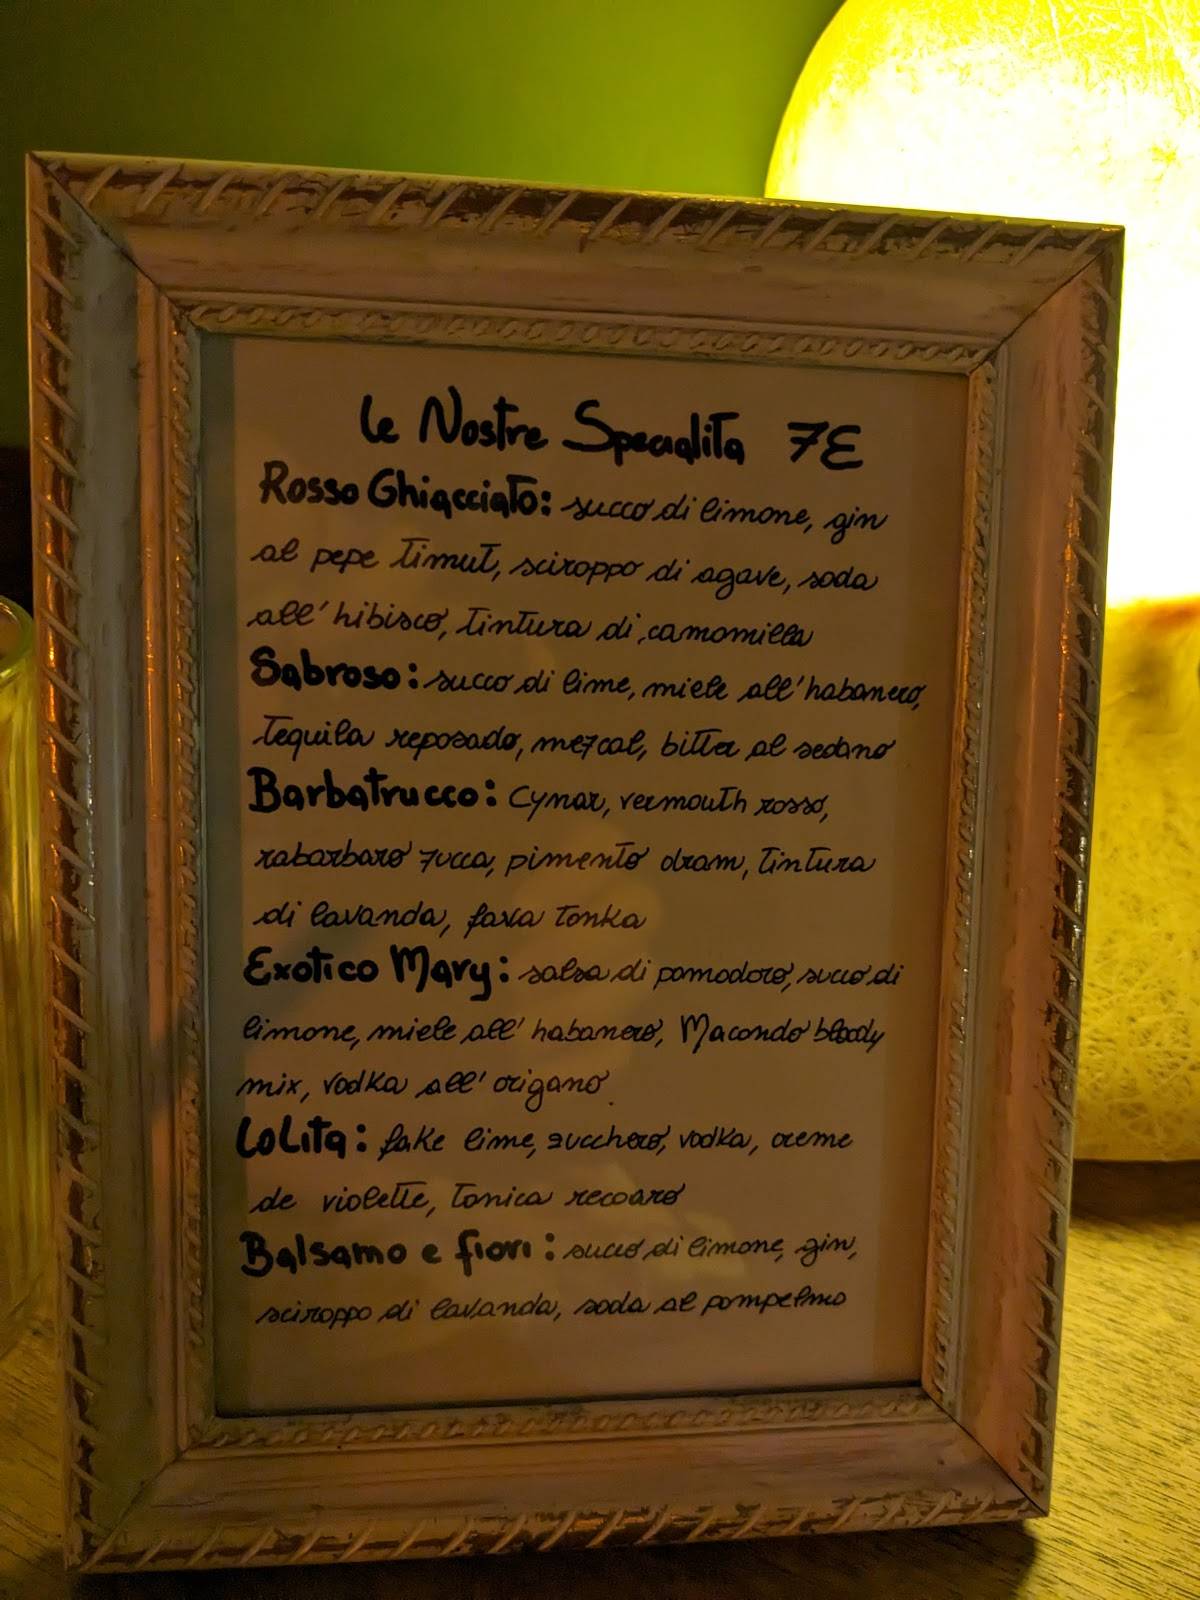 Le Nostre Specialita 7E
Rosso Ghiacciato: succo di limone, gin
al pepe timut, sciroppo di agave, soda
all' hibisco, tintura di camomilla
Sabroso: succo di lime, miele all' habanero,
tequila reposado, mezcal, bitter al sedano
Barbatrucco: Cynar, vermouth rosso,
rabarbaro zucca, pimento dram, tintura
di lavanda, fava tonka
Exotico Mary: salsa di pomodoro, succo di
limone, miele all' habanero, Macondo bloody
mix, vodka all' origano
Lolita: fake lime, zucchero, vodka, creme
de violette, tonica recoaro
Balsamo e fiori: succo di limone, gin,
sciroppo di lavanda, soda al pompelmo